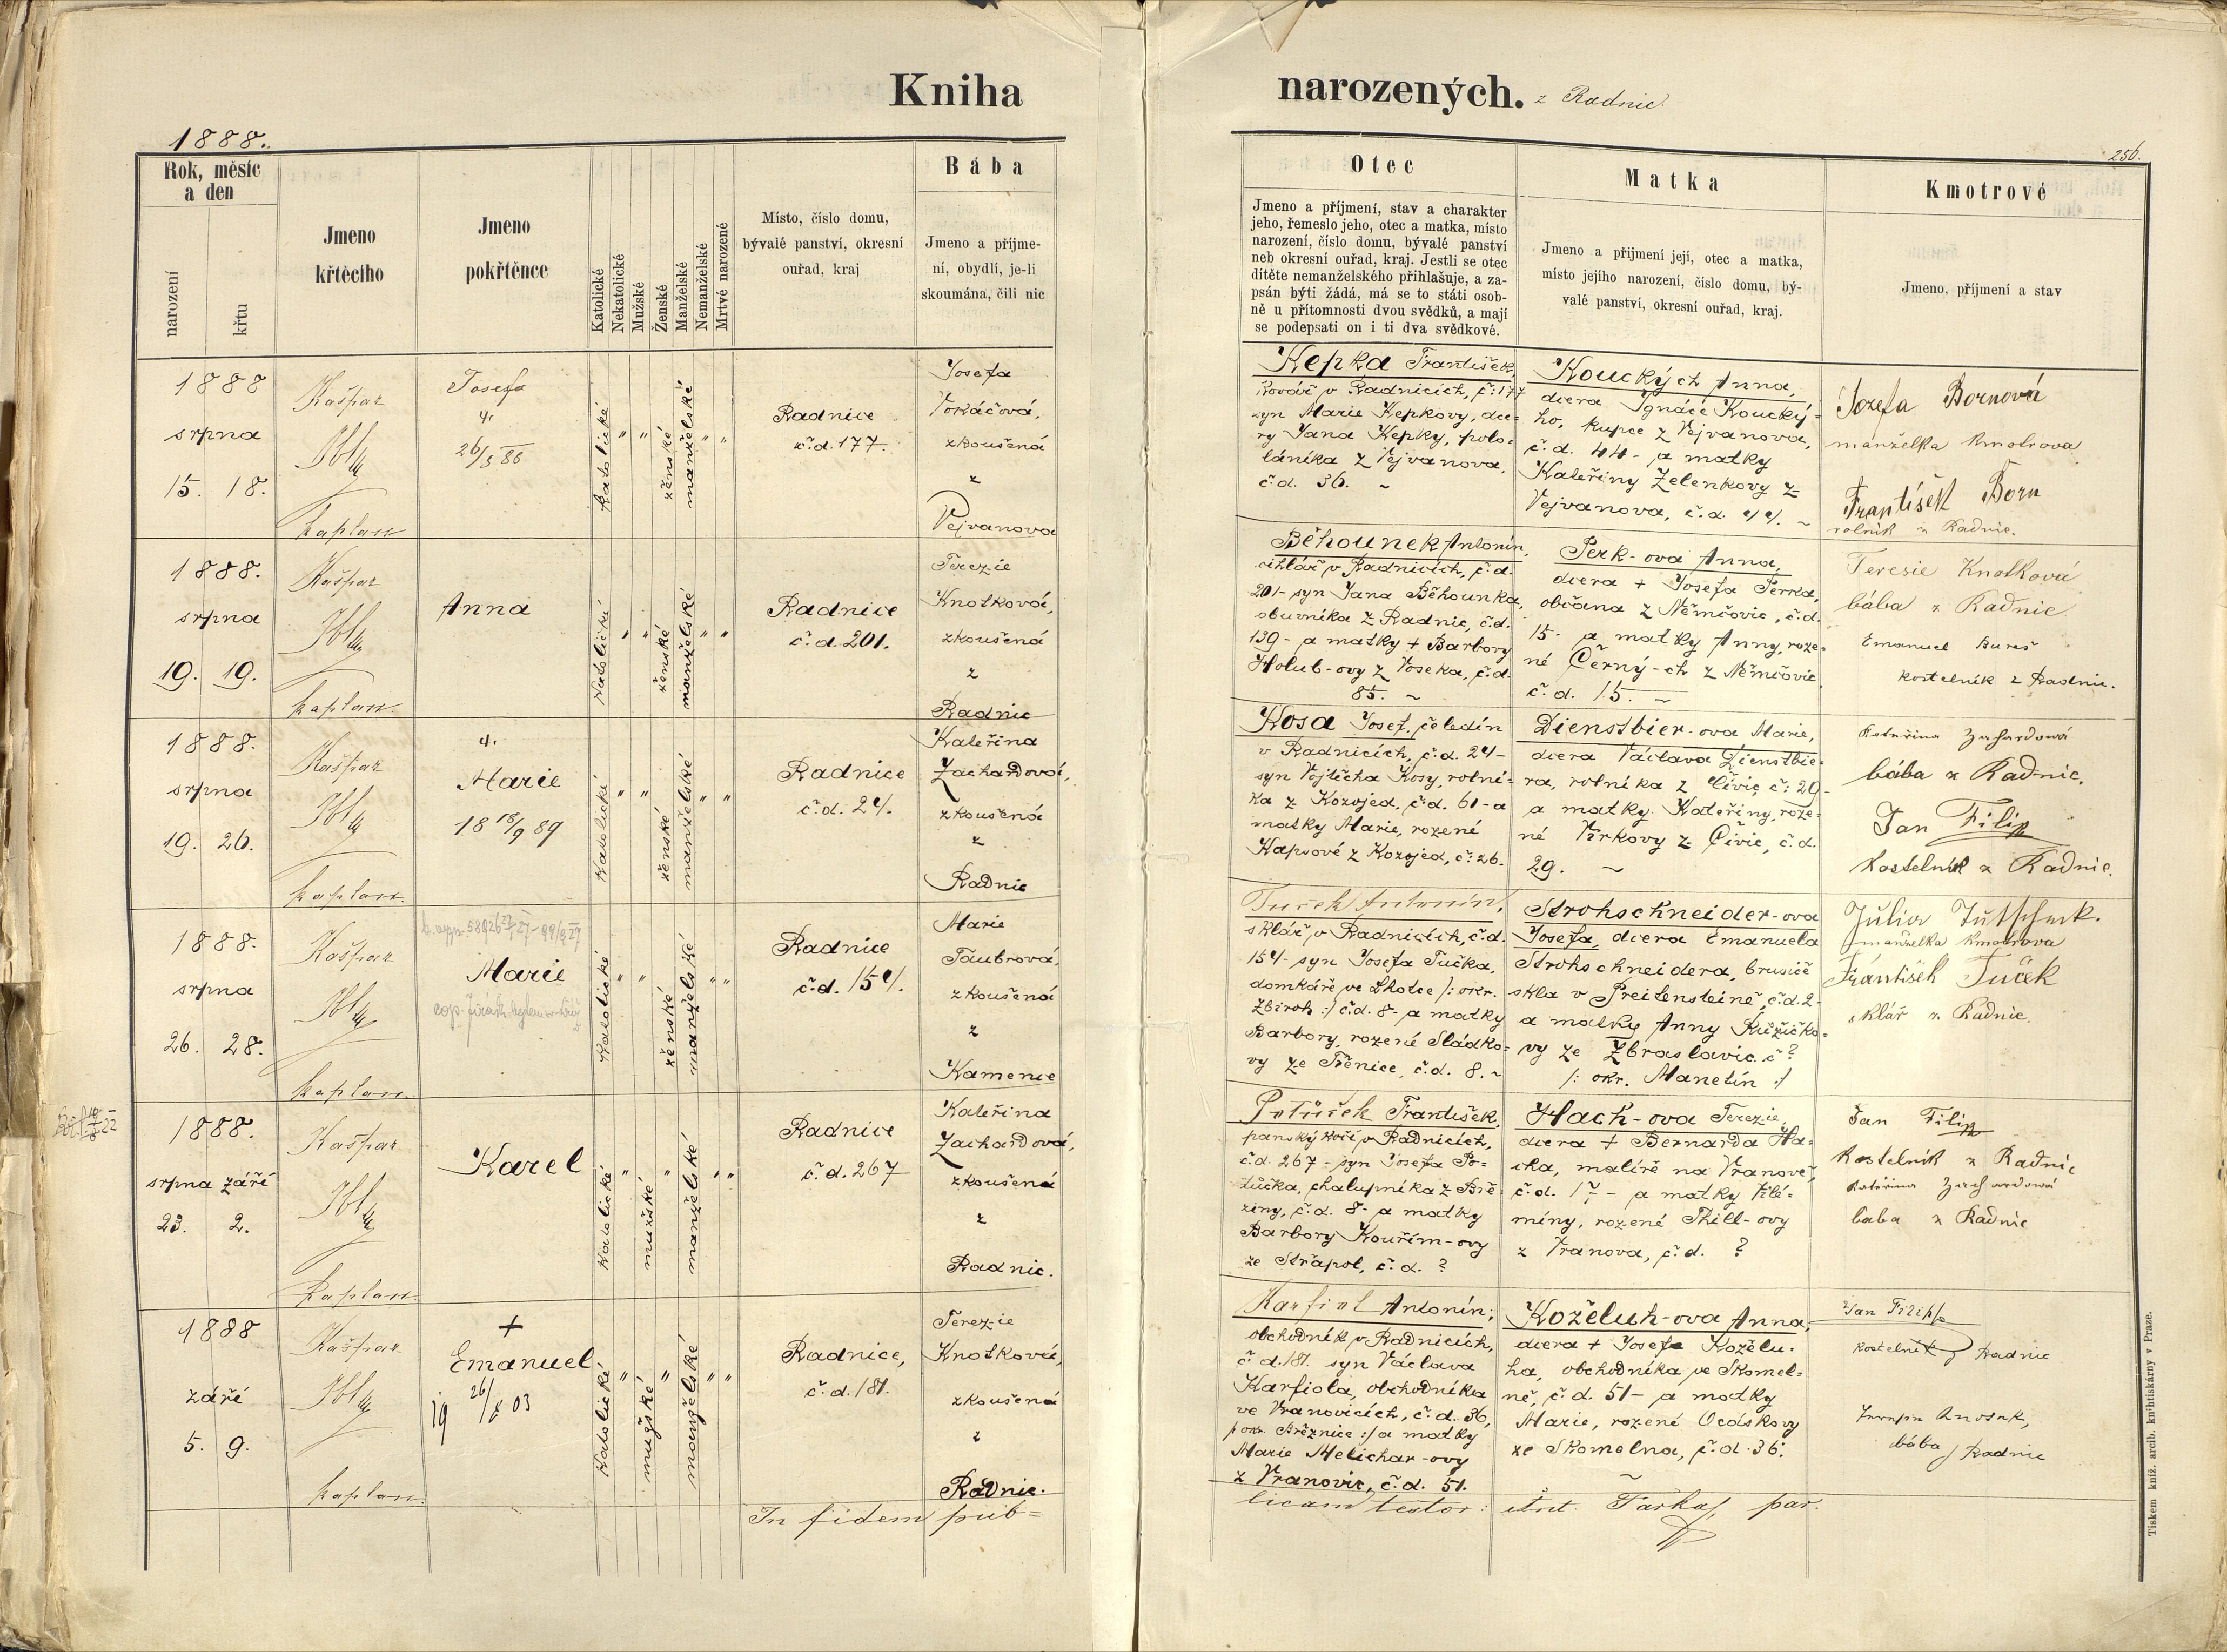 Kniha
narozených. z Radnic
1888.
256.
Rok, měsíc
a den
narození
křtu
Jmeno
křtěcího
Jmeno
pokřtěnce
Katolické
Nekatolické
Mužské
Ženské
Manželské
Nemanželské
Mrtvě narozené
Místo, číslo domu,
bývalé panství, okresní
ouřad, kraj
Bába
Jmeno a příjme-
ní, obydlí, je-li
skoumána, čili nic
Otec
Jmeno a příjmení, stav a charakter
jeho, řemeslo jeho, otec a matka, místo
narození, číslo domu, bývalé panství
neb okresní ouřad, kraj. Jestli se otec
dítěte nemanželského přihlašuje, a za-
psán býti žádá, má se to státi osob-
ně u přítomnosti dvou svědků, a mají
se podepsati on i ti dva svědkové.
Matka
Jmeno a přijmení její, otec a matka,
místo jejího narození, číslo domu, bý-
valé panství, okresní ouřad, kraj.
Kmotrové
Jmeno, příjmení a stav
1888
srpna
15. 18.
Kašpar
kaplan
Josefa
26/5 86
katolické
" "
ženské
manželské
" "
Radnice
č.d. 177.
Josefa
Vokáčová,
zkoušená
z
Vejvanova
Kepka František,
kovář v Radnicích, č: 177
syn Marie Kepkovy, dce-
ry Jana Kepky, polo-
láníka z Vejvanova,
č.d. 36. ~
Kouckých Anna,
dcera Ignáce Koucký-
ho, kupce z Vejvanova,
č.d. 44- a matky
Kateřiny Zelenkovy z
Vejvanova, č.d. 44. ~
Jozefa Bornová
manželka kmotrova
František Born
rolník z Radnic.
1888.
srpna
19. 19.
Kašpar
kaplan
Anna
katolické
" "
ženské
manželské
" "
Radnice
č.d. 201.
Terezie
Knotková,
zkoušená
z
Radnic
Běhounek Antonín,
cihlář v Radnicích, č.d.
201- syn Jana Běhounka,
obuvníka z Radnic, č.d.
139- a matky + Barbory
Holub-ovy z Voseka, č.d.
85. ~
Perk-ova Anna,
dcera + Josefa Perka,
občana z Němčovic, č.d.
15- a matky Anny, roze-
né Černý-ch z Němčovic
č.d. 15. ~
Teresie Knotková
bába z Radnic
Emanuel Bureš
kostelník z Radnic.
1888.
srpna
19. 26.
Kašpar
kaplan.
Marie
18 18/9 89
katolické
" "
ženské
manželské
" "
Radnice
č.d. 24.
Kateřina
Zachardová,
zkoušená
z
Radnic
Kosa Josef, čeledín
v Radnicích, č.d. 24-
syn Vojtěcha Kosy, rolní-
ka z Kozojed, č.d. 61- a
matky Marie, rozené
Kapsové z Kozojed, č: 26.
Dienstbier-ova Marie,
dcera Václava Dienstbie-
ra, rolníka z Čivic č: 20-
a matky Kateřiny, roze-
né Virkovy z Čivic, č.d.
29. ~
Kateřina Zachardová
bába z Radnic,
Jan Filip
kostelník z Radnic.
1888.
srpna
26. 28.
Kašpar
kaplan.
Marie
katolické
" "
ženské
manželské
" "
Radnice
č.d. 154.
Marie
Taubrová,
zkoušená
z
Kamence
Tuček Antonín,
sklář v Radnicích, č.d.
154- syn Josefa Tučka,
domkáře ve Lhotce /: okr.
Zbiroh :/ č.d. 8- a matky
Barbory, rozené Sládko-
vy ze Těnice, č.d. 8. ~
Strohschneider-ova
Josefa, dcera Emanuela
Strohschneidera, brusiče
skla v Preitensteině, č.d. 2-
a matky Anny Růžičko-
vy ze Zbraslavic č ?
/: okr. Manetín :/
Julia
manželka kmotrova
František Tuček
sklář z Radnic.
1888.
srpna září
23. 2.
Kašpar
kaplan.
Karel
katolické
"
mužské
"
manželské
" "
Radnice
č.d. 267
Kateřina
Zachardová,
zkoušená
z
Radnic.
Potůček František,
panský kočí v Radnicích,
č.d. 267- syn Josefa Po-
tůčka, chalupníka z Bře-
ziny, č.d. 8- a matky
Barbory Kouřím-ovy
ze Střapol, č.d. ?
Hach-ova Terezie,
dcera + Bernarda Ha-
cha, malíře na Vranově,
č.d. 1?- a matky Vilé-
míny, rozené Thill-ovy
z Vranova, č.d. ?
Jan Filip
kostelník z Radnic
Kateřina Zachardová
baba z Radnic
1888
září
5. 9.
Kašpar
kaplan.
+
Emanuel
19 26/X 03
katolické
"
mužské
"
manželské
" "
Radnice,
č.d. 181.
Terezie
Knotková,
zkoušená
z
Radnic.
Karfiol Antonín,
obchodník v Radnicích,
č.d. 181. syn Václava
Karfiola, obchodníka
ve Vranovicích, č.d. 36,
/: okr. Březnice :/ a matky
Marie Melichar-ovy
z Vranovic, č.d. 51.
Koželuh-ova Anna,
dcera + Josefa Koželu-
ha, obchodníka ve Skomel-
ně, č.d. 51- a matky
Marie, rozené Ocáskovy
ze Skomelna, č.d. 36.
~
Jan Filip
kostelník z Radnic
bába z Radnic
In fidem pub=
licam testor: Ant. par.
Tiskem kníž. arcib. knihtiskárny v Praze.